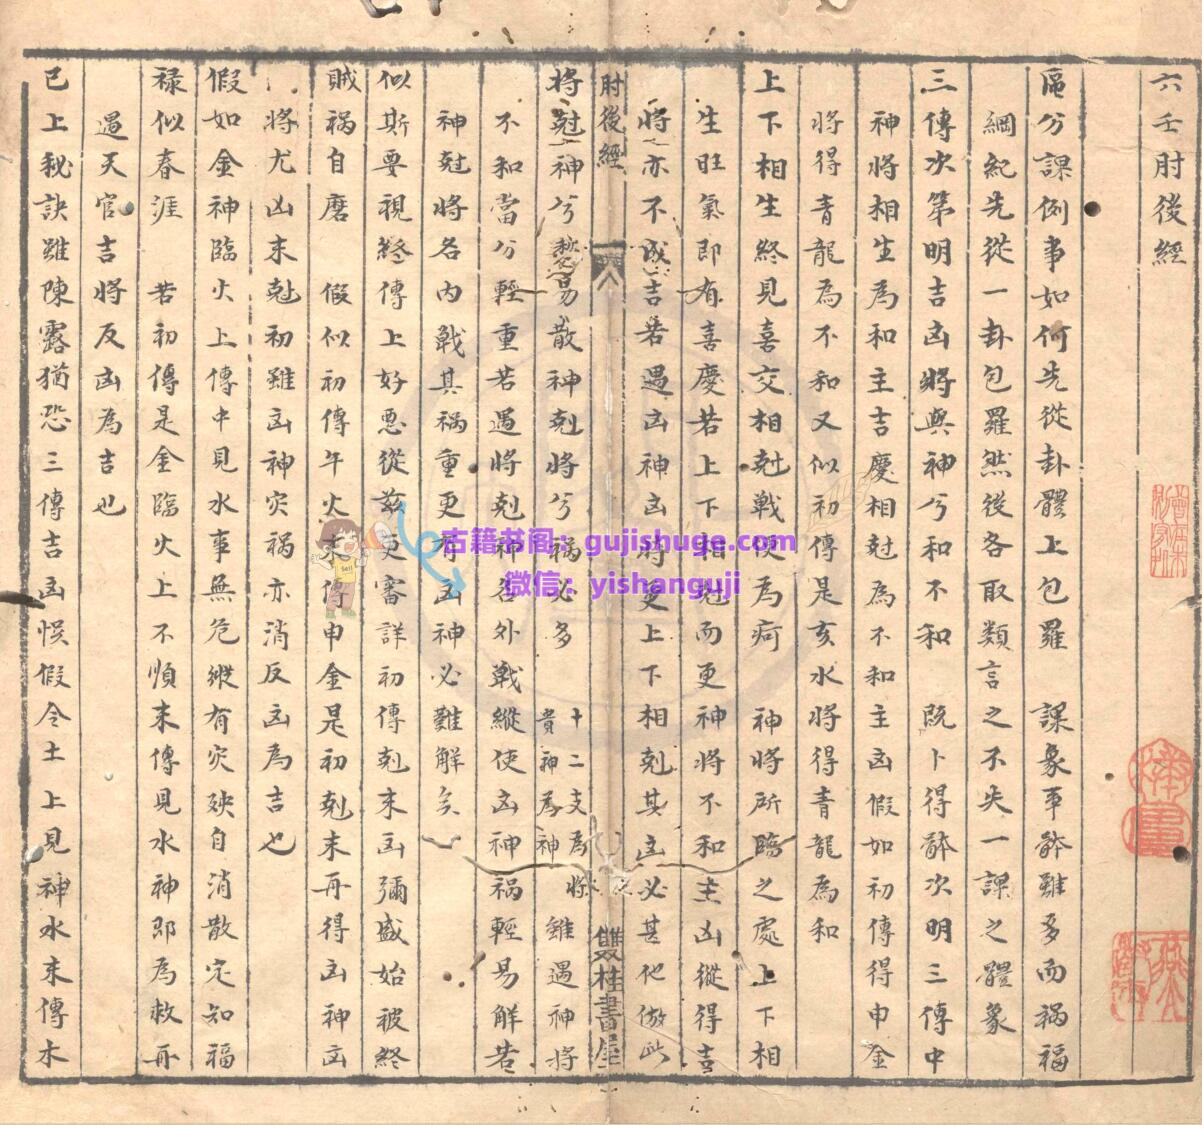 六壬肘後經
區分課例事如何先從卦體上包羅 課象事體雖多而禍福
綱紀先從一卦包羅然後各取類言之不失一課之體象
三傳次第明吉凶將與神兮和不和 既卜得體次明三傳中
神將相生為和主吉慶相尅為不和主凶假如初傳得申金
將得青龍為不和又似初傳是亥水將得青龍為和
上下相生終見喜交相尅戰便為疴 神將所臨之處上下相
生旺氣即有喜慶若上下相尅而更神將不和主凶從得吉
將亦不成吉若遇凶神凶將更上下相剋其凶必甚他倣此
肘後經
雙桂書屋
將尅神兮易散神剋將兮禍必多 十二支為將貴神為神 雖遇神將
不和當分輕重若遇將剋神名外戰縱使凶神禍輕易解若
神尅將名內戰其禍重更有凶神必難解矣
似斯要視終傳上好惡從茲更審詳初傳剋末凶彌盛始被終
賊禍自磨 假似初傳午火末傳申金是初剋末再得凶神凶
將尤凶末尅初雖凶神灾禍亦消反凶為吉也
假如金神臨火上傳中見水事無危縱有灾殃自消散定知福
祿似春涯 若初傳是金臨火上不順末傳見水神即為救再
遇天官吉將反凶為吉也
已上秘訣雖陳露猶恐三傳吉凶悞假令土上見神水末傳木
古籍书阁：gujishuge.com
微信：yishanguji